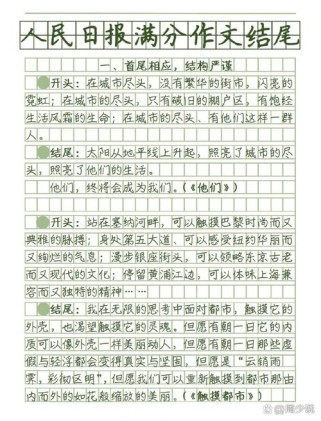 人民日报满分作文结尾
一、首尾相应，结构严谨
开头：在城市尽头，没有繁华的街市，闪亮的
霓虹；在城市的尽头，只有破旧的棚户区，有饱经
生活风霜的生命；在城市的尽头、有他们这样一群
人。
结尾：太阳从地平线上升起，照亮了城市的尽
头，照亮了他们的生活。
他们，终将会成为我们。（《他们》）
开头：站在塞纳河畔，可以触摸巴黎时尚而又
典雅的脉搏；身处第五大道、可以感受纽约华丽而
又绚烂的气息；漫步银座街头，可以领略东京古老
而又现代的文化；停留黄浦江边，可以体味上海兼
容而又独特的精神……
结尾：我在无限的思考中面对都市，触摸它的
外壳，也渴望触摸它的灵魂。但愿有朝一日它的内
质可以像外壳一样美丽动人，但愿有朝一日那些虚
假与轻浮都会变得真实与坚固，但愿是“云销雨
霁，彩彻区明”，但愿我们可以重新触摸到都市那由
内而外的如花般绽放的美丽。（《触摸都市》）